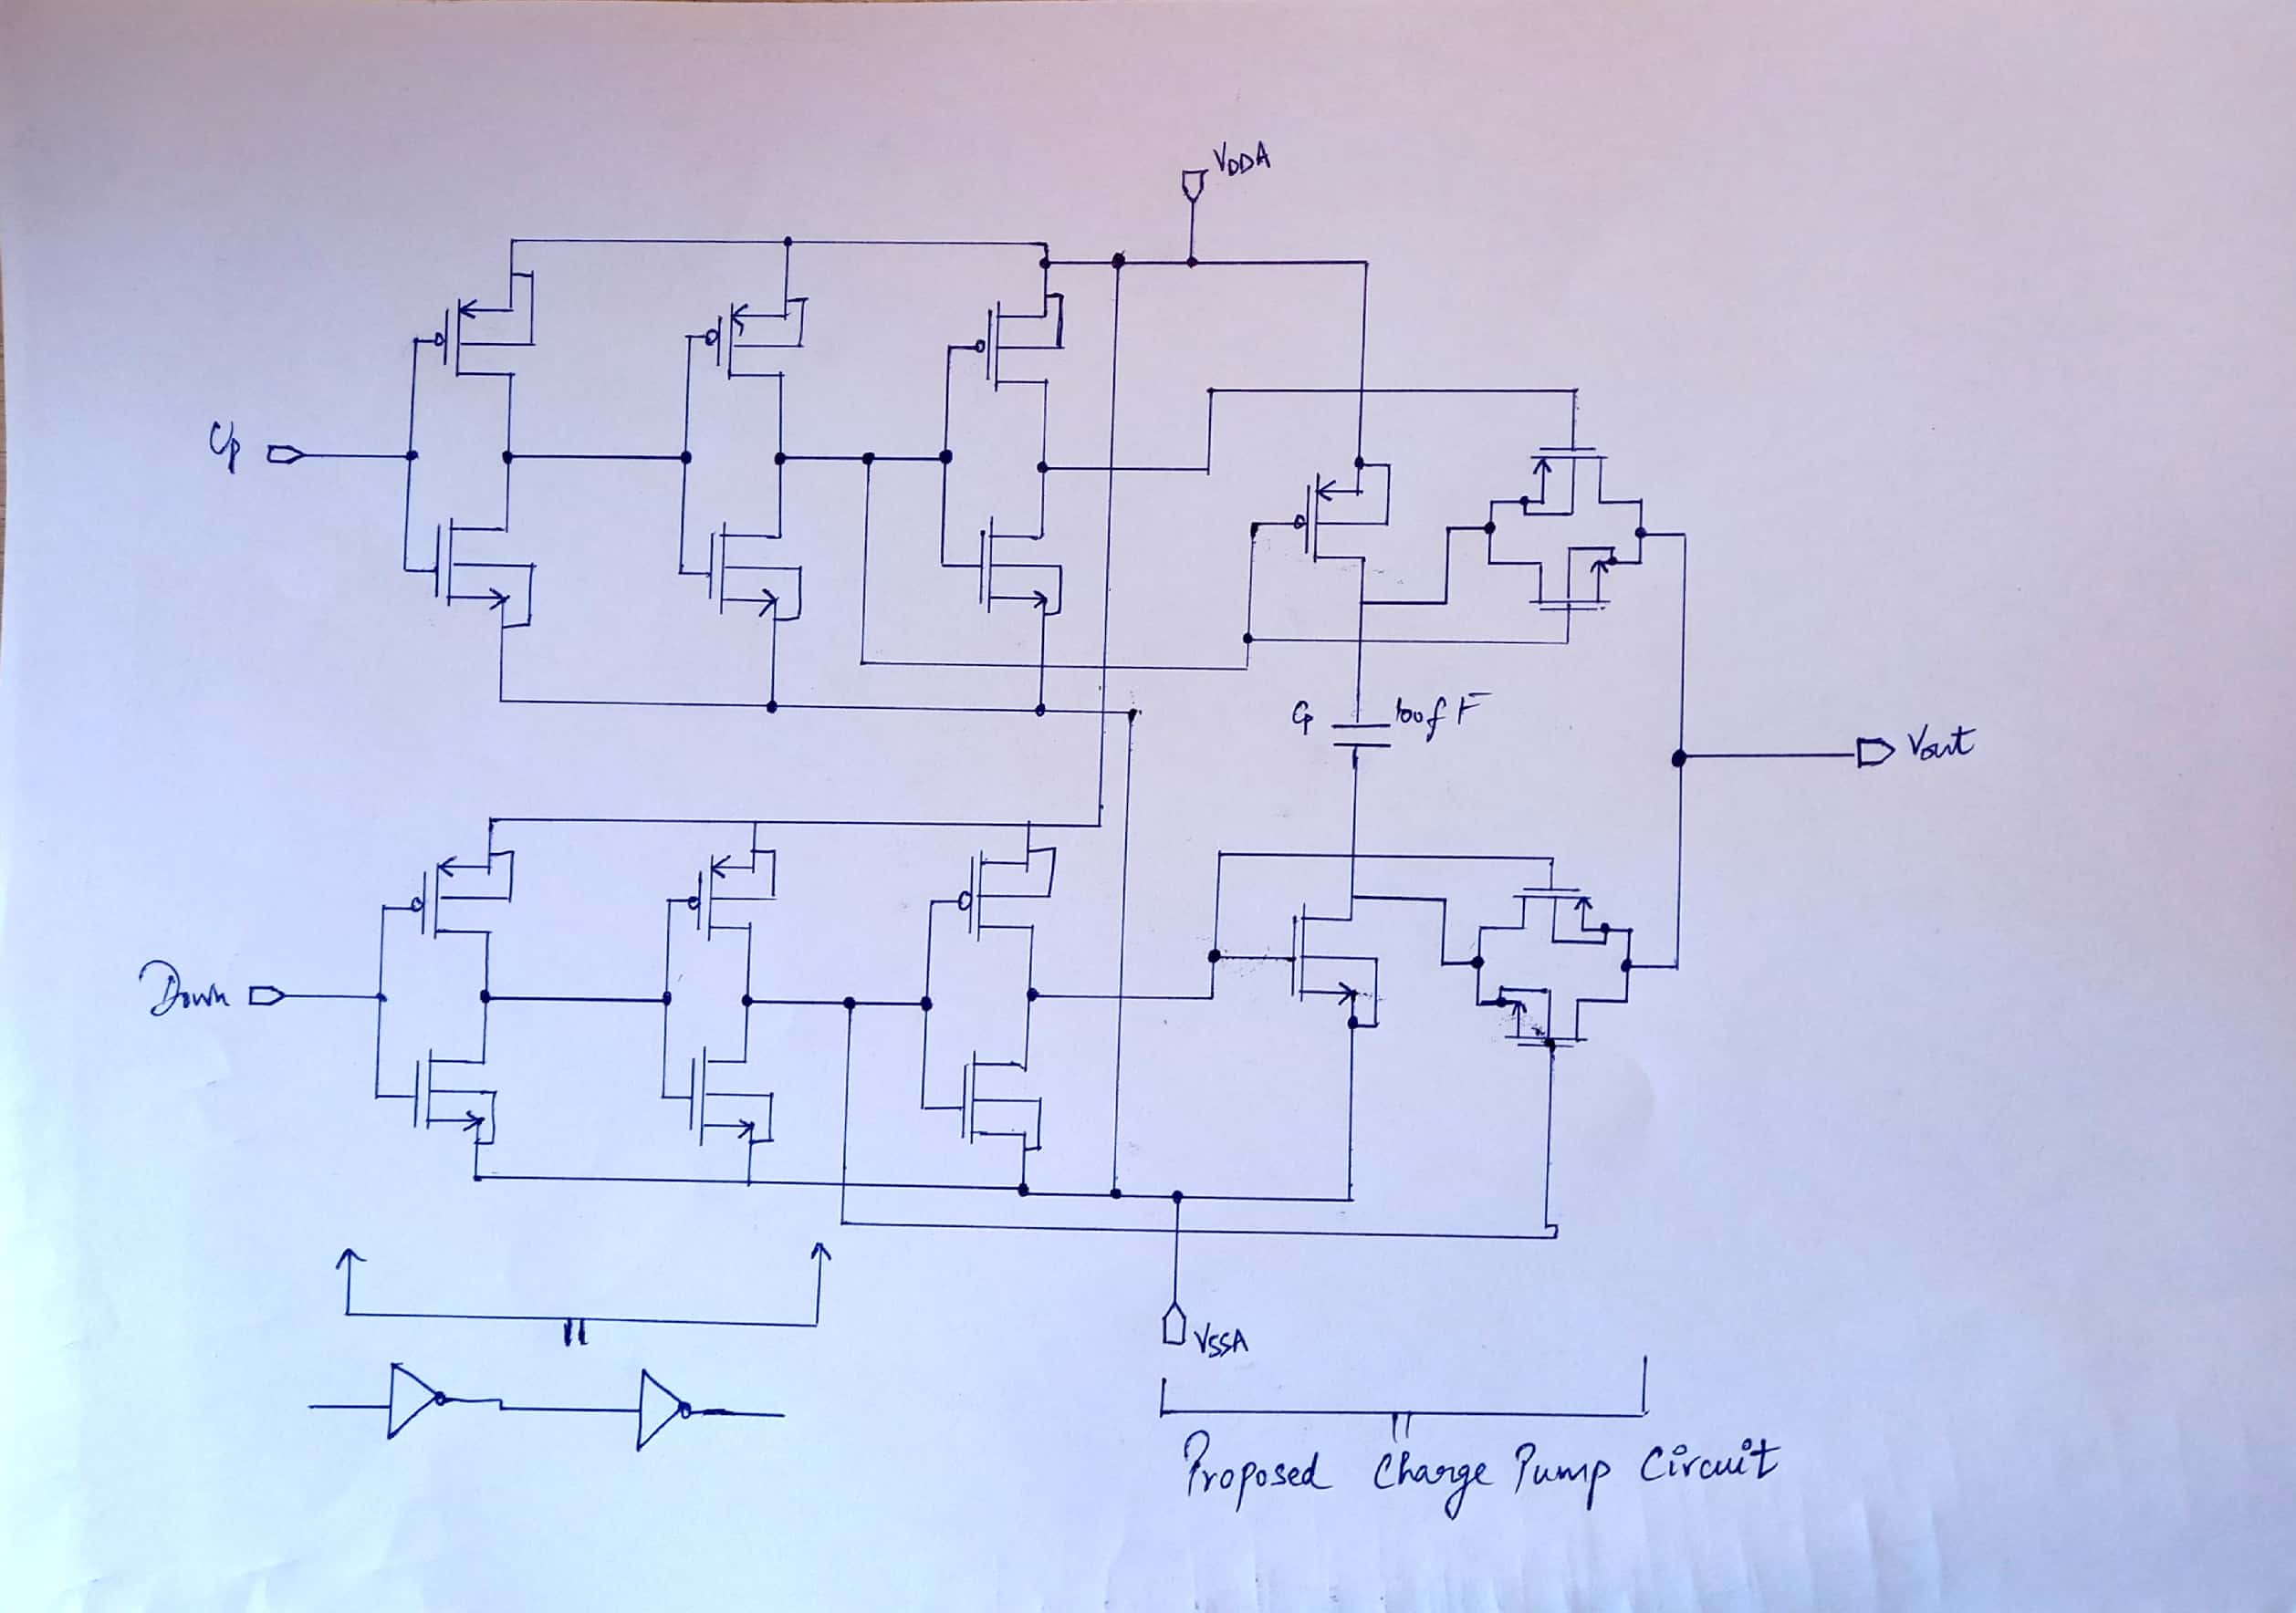 VDDA
Up
C1 100fF
Vout
Down
VSSA
Proposed Charge Pump Circuit